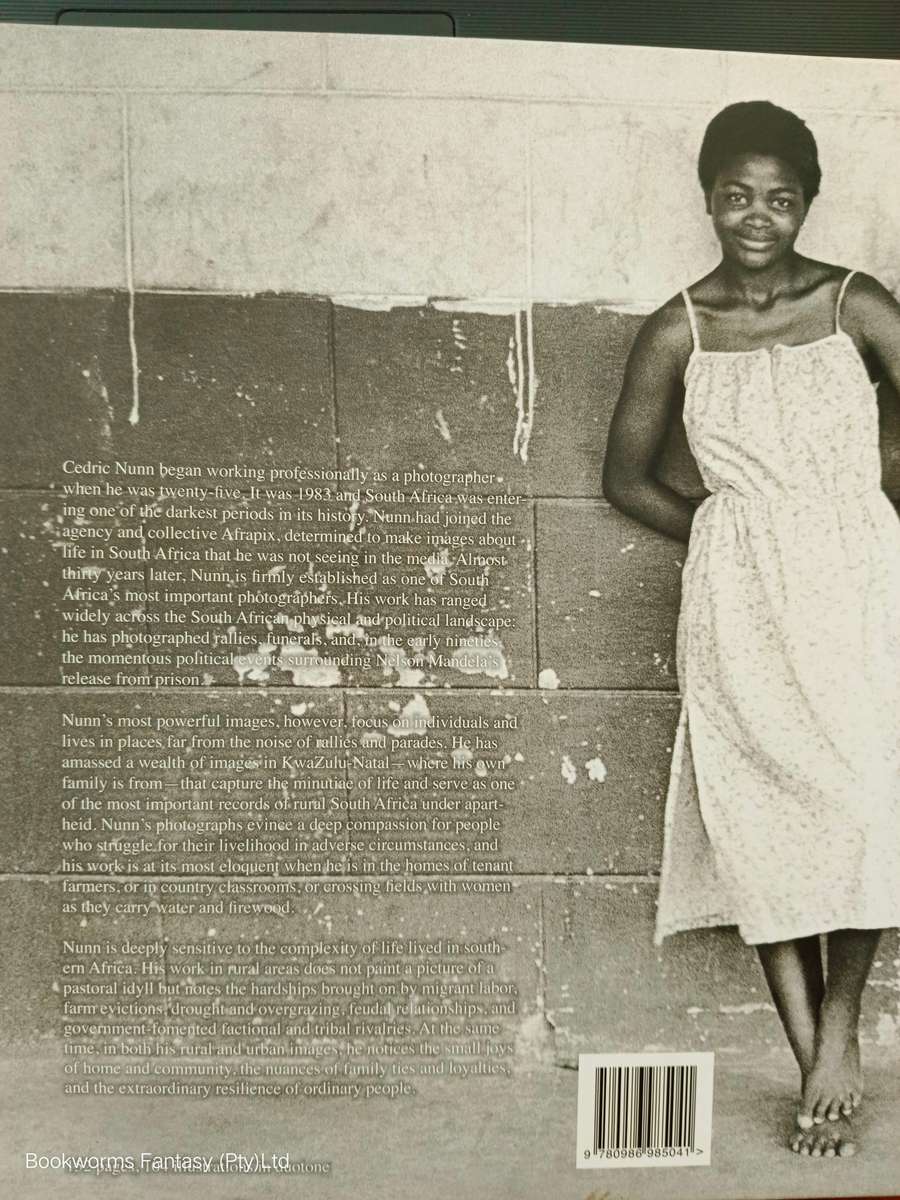 Cedric Nunn began working professionally as a photographer
when he was twenty-five. It was 1983 and South Africa was enter-
ing one of the darkest periods in its history. Nunn had joined the
agency and collective Afrapix, determined to make images about
life in South Africa that he was not seeing in the media. Almost
thirty years later, Nunn is firmly established as one of South
Africa's most important photographers. His work has ranged
widely across the South African physical and political landscape:
he has photographed rallies, funerals, and, in the early nineties,
the momentous political events surrounding Nelson Mandela's
release from prison.
Nunn's most powerful images, however, focus on individuals and
lives in places far from the noise of rallies and parades. He has
amassed a wealth of images in KwaZulu-Natal—where his own
family is from—that capture the minutiae of life and serve as one
of the most important records of rural South Africa under apart-
heid. Nunn's photographs evince a deep compassion for people
who struggle for their livelihood in adverse circumstances, and
his work is at its most eloquent when he is in the homes of tenant
farmers, or in country classrooms, or crossing fields with women
as they carry water and firewood.
Nunn is deeply sensitive to the complexity of life lived in south-
ern Africa. His work in rural areas does not paint a picture of a
pastoral idyll but notes the hardships brought on by migrant labor,
farm evictions, drought and overgrazing, feudal relationships, and
government-fomented factional and tribal rivalries. At the same
time, in both his rural and urban images, he notices the small joys
of home and community, the nuances of family ties and loyalties,
and the extraordinary resilience of ordinary people.
Bookworms Fantasy (Pty) Ltd
pages, illustrations in duotone
9 780986 985041 >